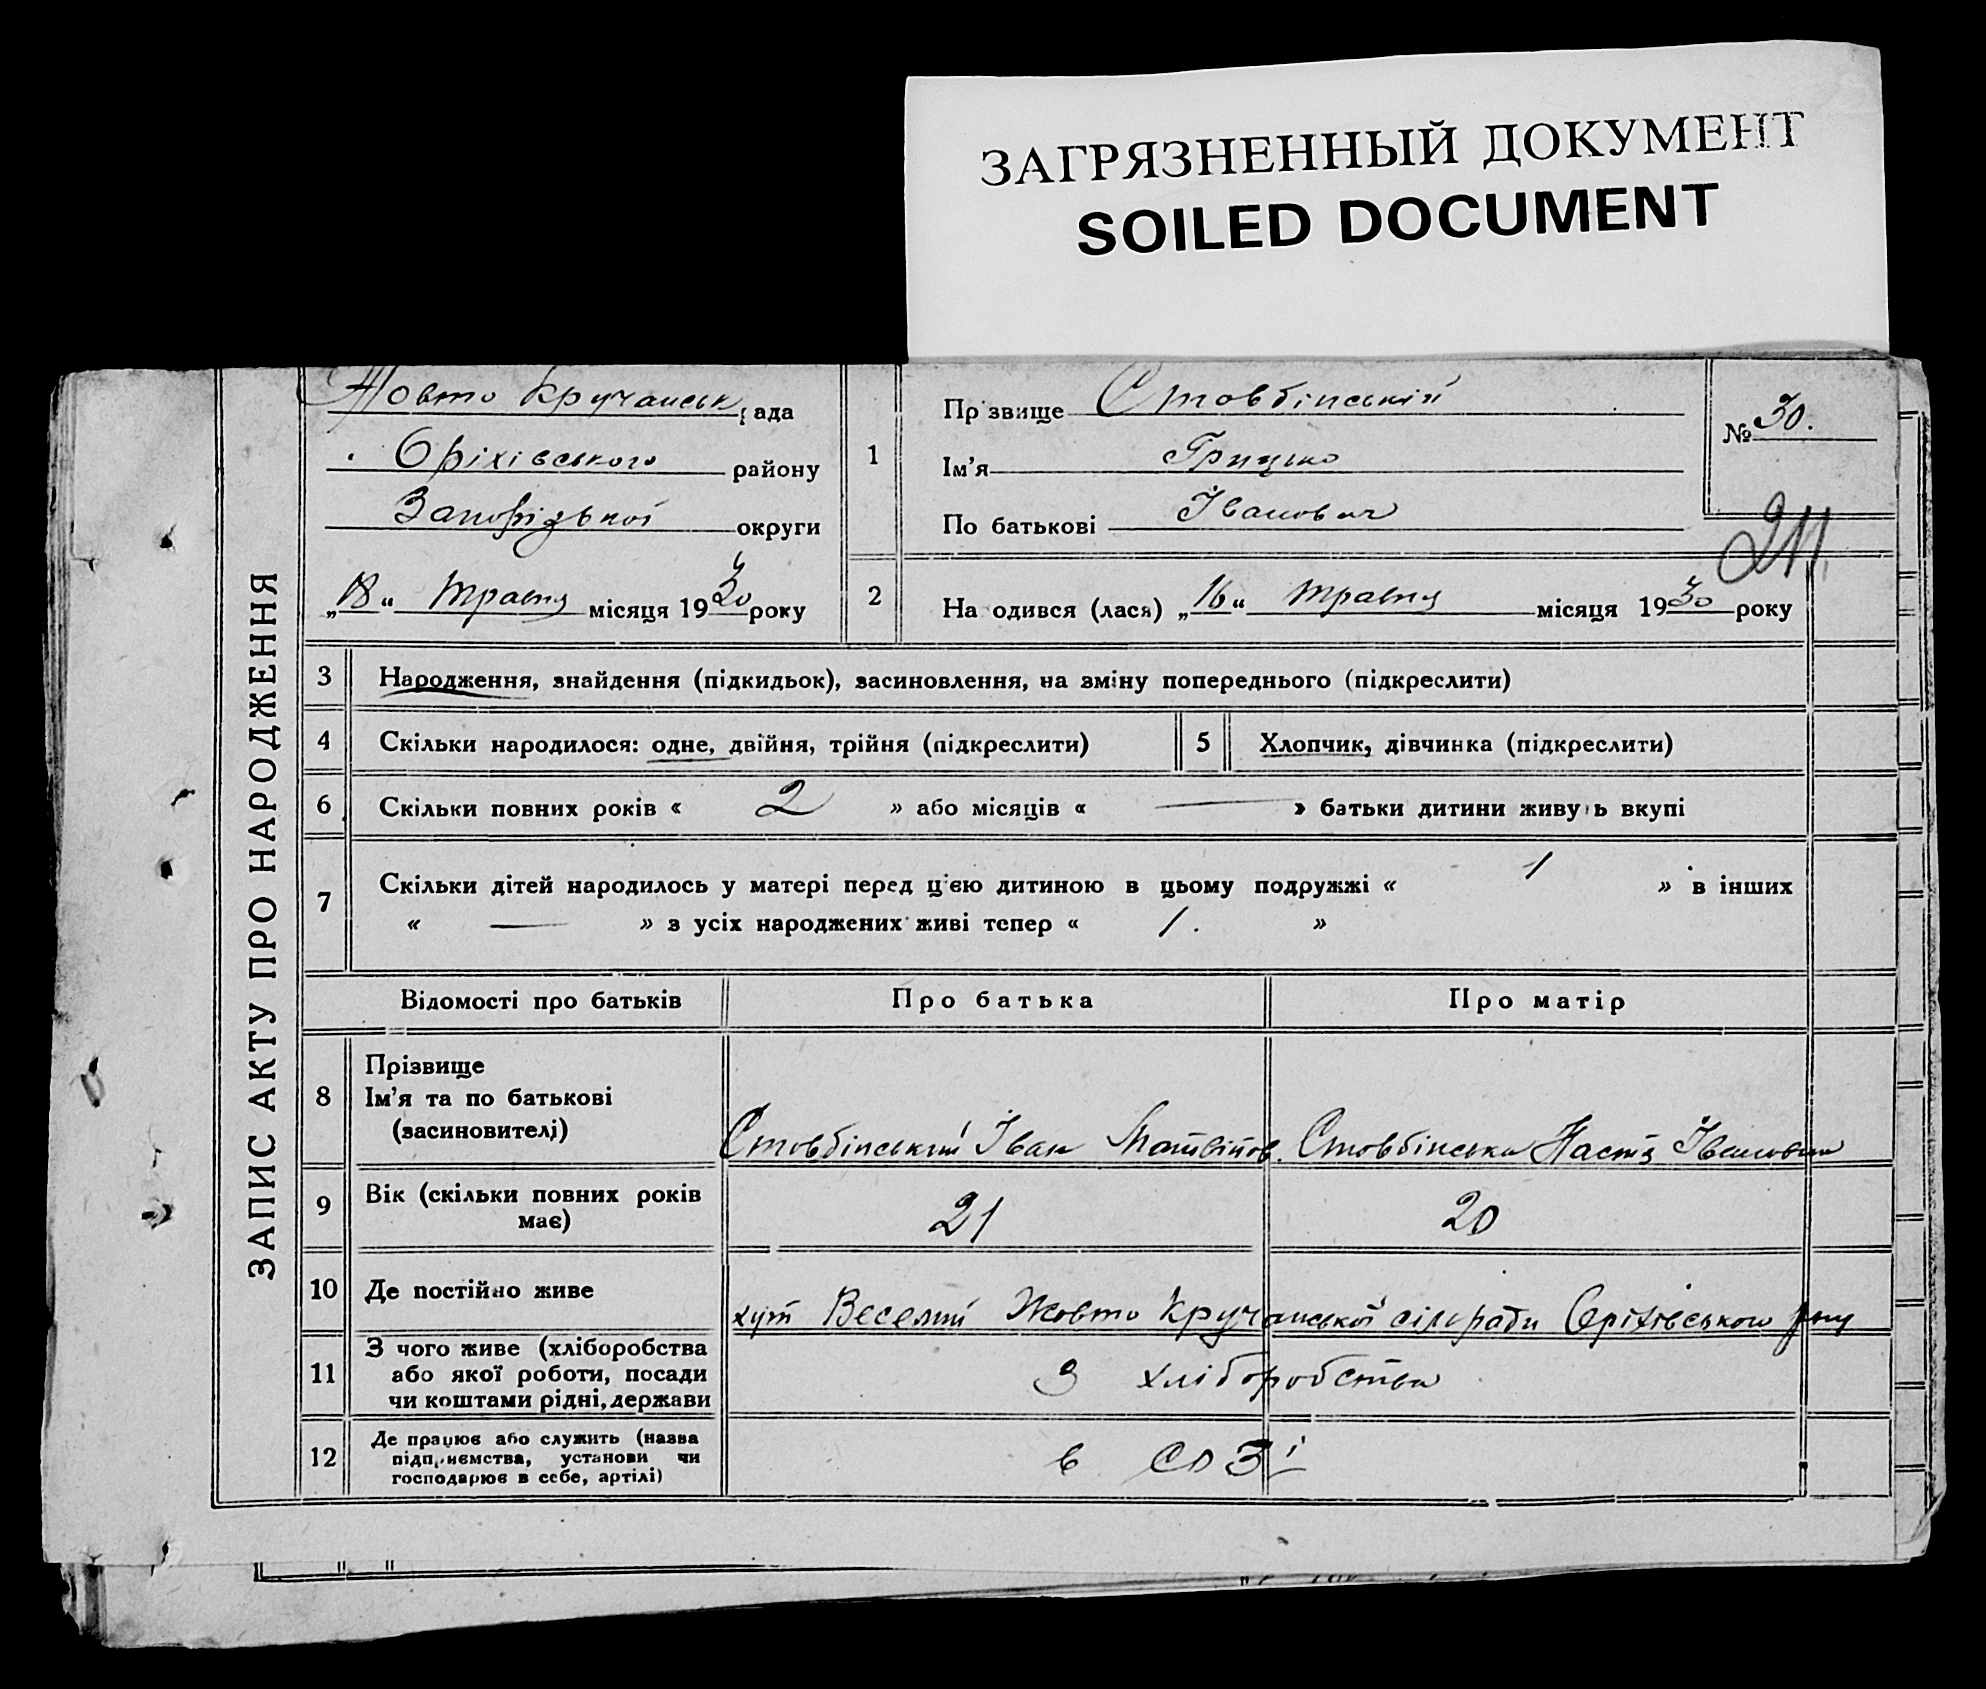 ЗАГРЯЗНЕННЫЙ ДОКУМЕНТ
SOILED DOCUMENT
ЗАПИС АКТУ ПРО НАРОДЖЕННЯ
Жовто Кручанськ рада
Оріхівського району
Запорізької округи
„18“ травня місяця 1930 року
1
Прізвище Стовбінський
Ім'я Грицько
По батькові Іванович
№ 30.
211
2
На одився (лася) „16“ травня місяця 1930 року
3 Народження, знайдення (підкидьок), засиновлення, на зміну попереднього (підкреслити)
4 Скільки народилося: одне, двійня, трійня (підкреслити)
5 Хлопчик, дівчинка (підкреслити)
6 Скільки повних років « 2 » або місяців « — » батьки дитини живуть вкупі
7 Скільки дітей народилось у матері перед цією дитиною в цьому подружжі « 1 » в інших
« — » з усіх народжених живі тепер « 1. »
Відомості про батьків Про батька Про матір
8 Прізвище
Ім'я та по батькові
(засиновителі)
Стовбінський Іван Матвійов. Стовбінська Настя Івановна
9 Вік (скільки повних років
має)
21 20
10 Де постійно живе
хут Веселий Жовто Кручанської сілради Оріхівського рну
11 З чого живе (хліборобства
або якої роботи, посади
чи коштами рідні, держави
З хліборобства
12 Де працює або служить (назва
підприємства, установи чи
господарює в себе, артілі)
в СОЗі